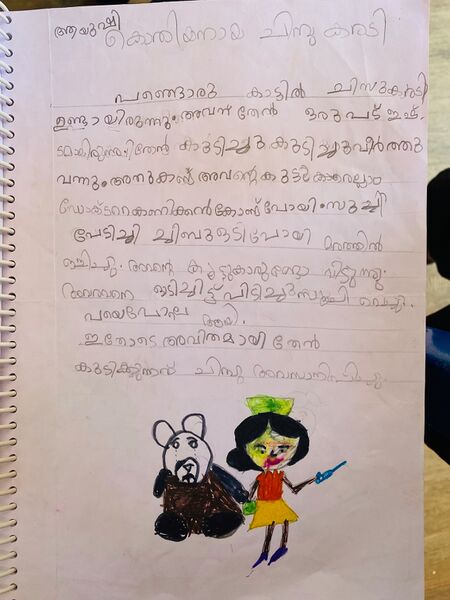 ആയുഷി
കൊതിയനായ ചിമ്പു കരടി
പണ്ടൊരു കാട്ടിൽ ചിമ്പുകരടി
ഉണ്ടായിരുന്നു. അവന് തേൻ ഒരുപട് ഇഷ്ട
മായിരുന്നു. തേൻ കുടിച്ചു കുടിച്ചു വീർത്തു
വന്നു. അതു കണ്ട് അവന്റെ കുട്ടുകാരെല്ലാം
ഡോക്ടറെ കാണിക്കൻ കോണ്ട് പോയി. സൂചി
പേടിച്ച് ചിമ്പു ഓടി പോയി മരത്തിൻ
ഒളിച്ചു. അവന്റെ കൂട്ടുകാരുണ്ടോ വിടുന്നു.
അവനെ ഓടിച്ചിട്ട് പിടിച്ചു സൂചി വെച്ചു.
പയെപോലെ ആയി.
ഇതോടെ അമിതമായി തേൻ
കുടിക്കുന്നത് ചിമ്പു അവസാനിപ്പിച്ചു